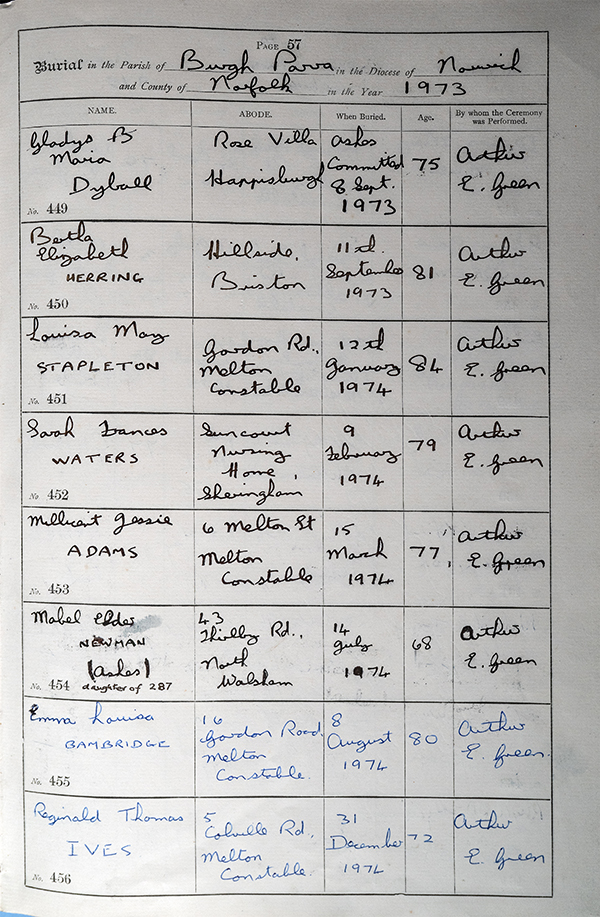 PAGE 57
Burial in the Parish of Burgh Parva in the Diocese of Norwich
and County of Norfolk in the Year 1973
NAME. ABODE. When Buried. Age. By whom the Ceremony was Performed.
Gladys B
Maria
Dyball
No. 449
Rose Villa
Happisburgh
Ashes
Committed
8 Sept.
1973
75
Arthur
E. Green
Bertha
Elizabeth
HERRING
No. 450
Hillside,
Briston
11th
September
1973
81
Arthur
E. Green
Louisa May
STAPLETON
No. 451
Gordon Rd.,
Melton
Constable
12th
January
1974
84
Arthur
E. Green
Sarah Frances
WATERS
No. 452
Suncourt
Nursing
Home,
Sheringham
9
February
1974
79
Arthur
E. Green
Millicent Jessie
ADAMS
No. 453
6 Melton St
Melton
Constable
15
March
1974
77
Arthur
E. Green
Mabel Elder
NEWMAN
(Ashes)
No. 454 daughter of 287
43
Rd.,
North
Walsham
14
July
1974
68
Arthur
E. Green
Emma Louisa
BAMBRIDGE
No. 455
16
Gordon Road
Melton
Constable.
8
August
1974
80
Arthur
E. Green
Reginald Thomas
IVES
No. 456
5
Colville Rd,
Melton
Constable.
31
December
1974
72
Arthur
E. Green